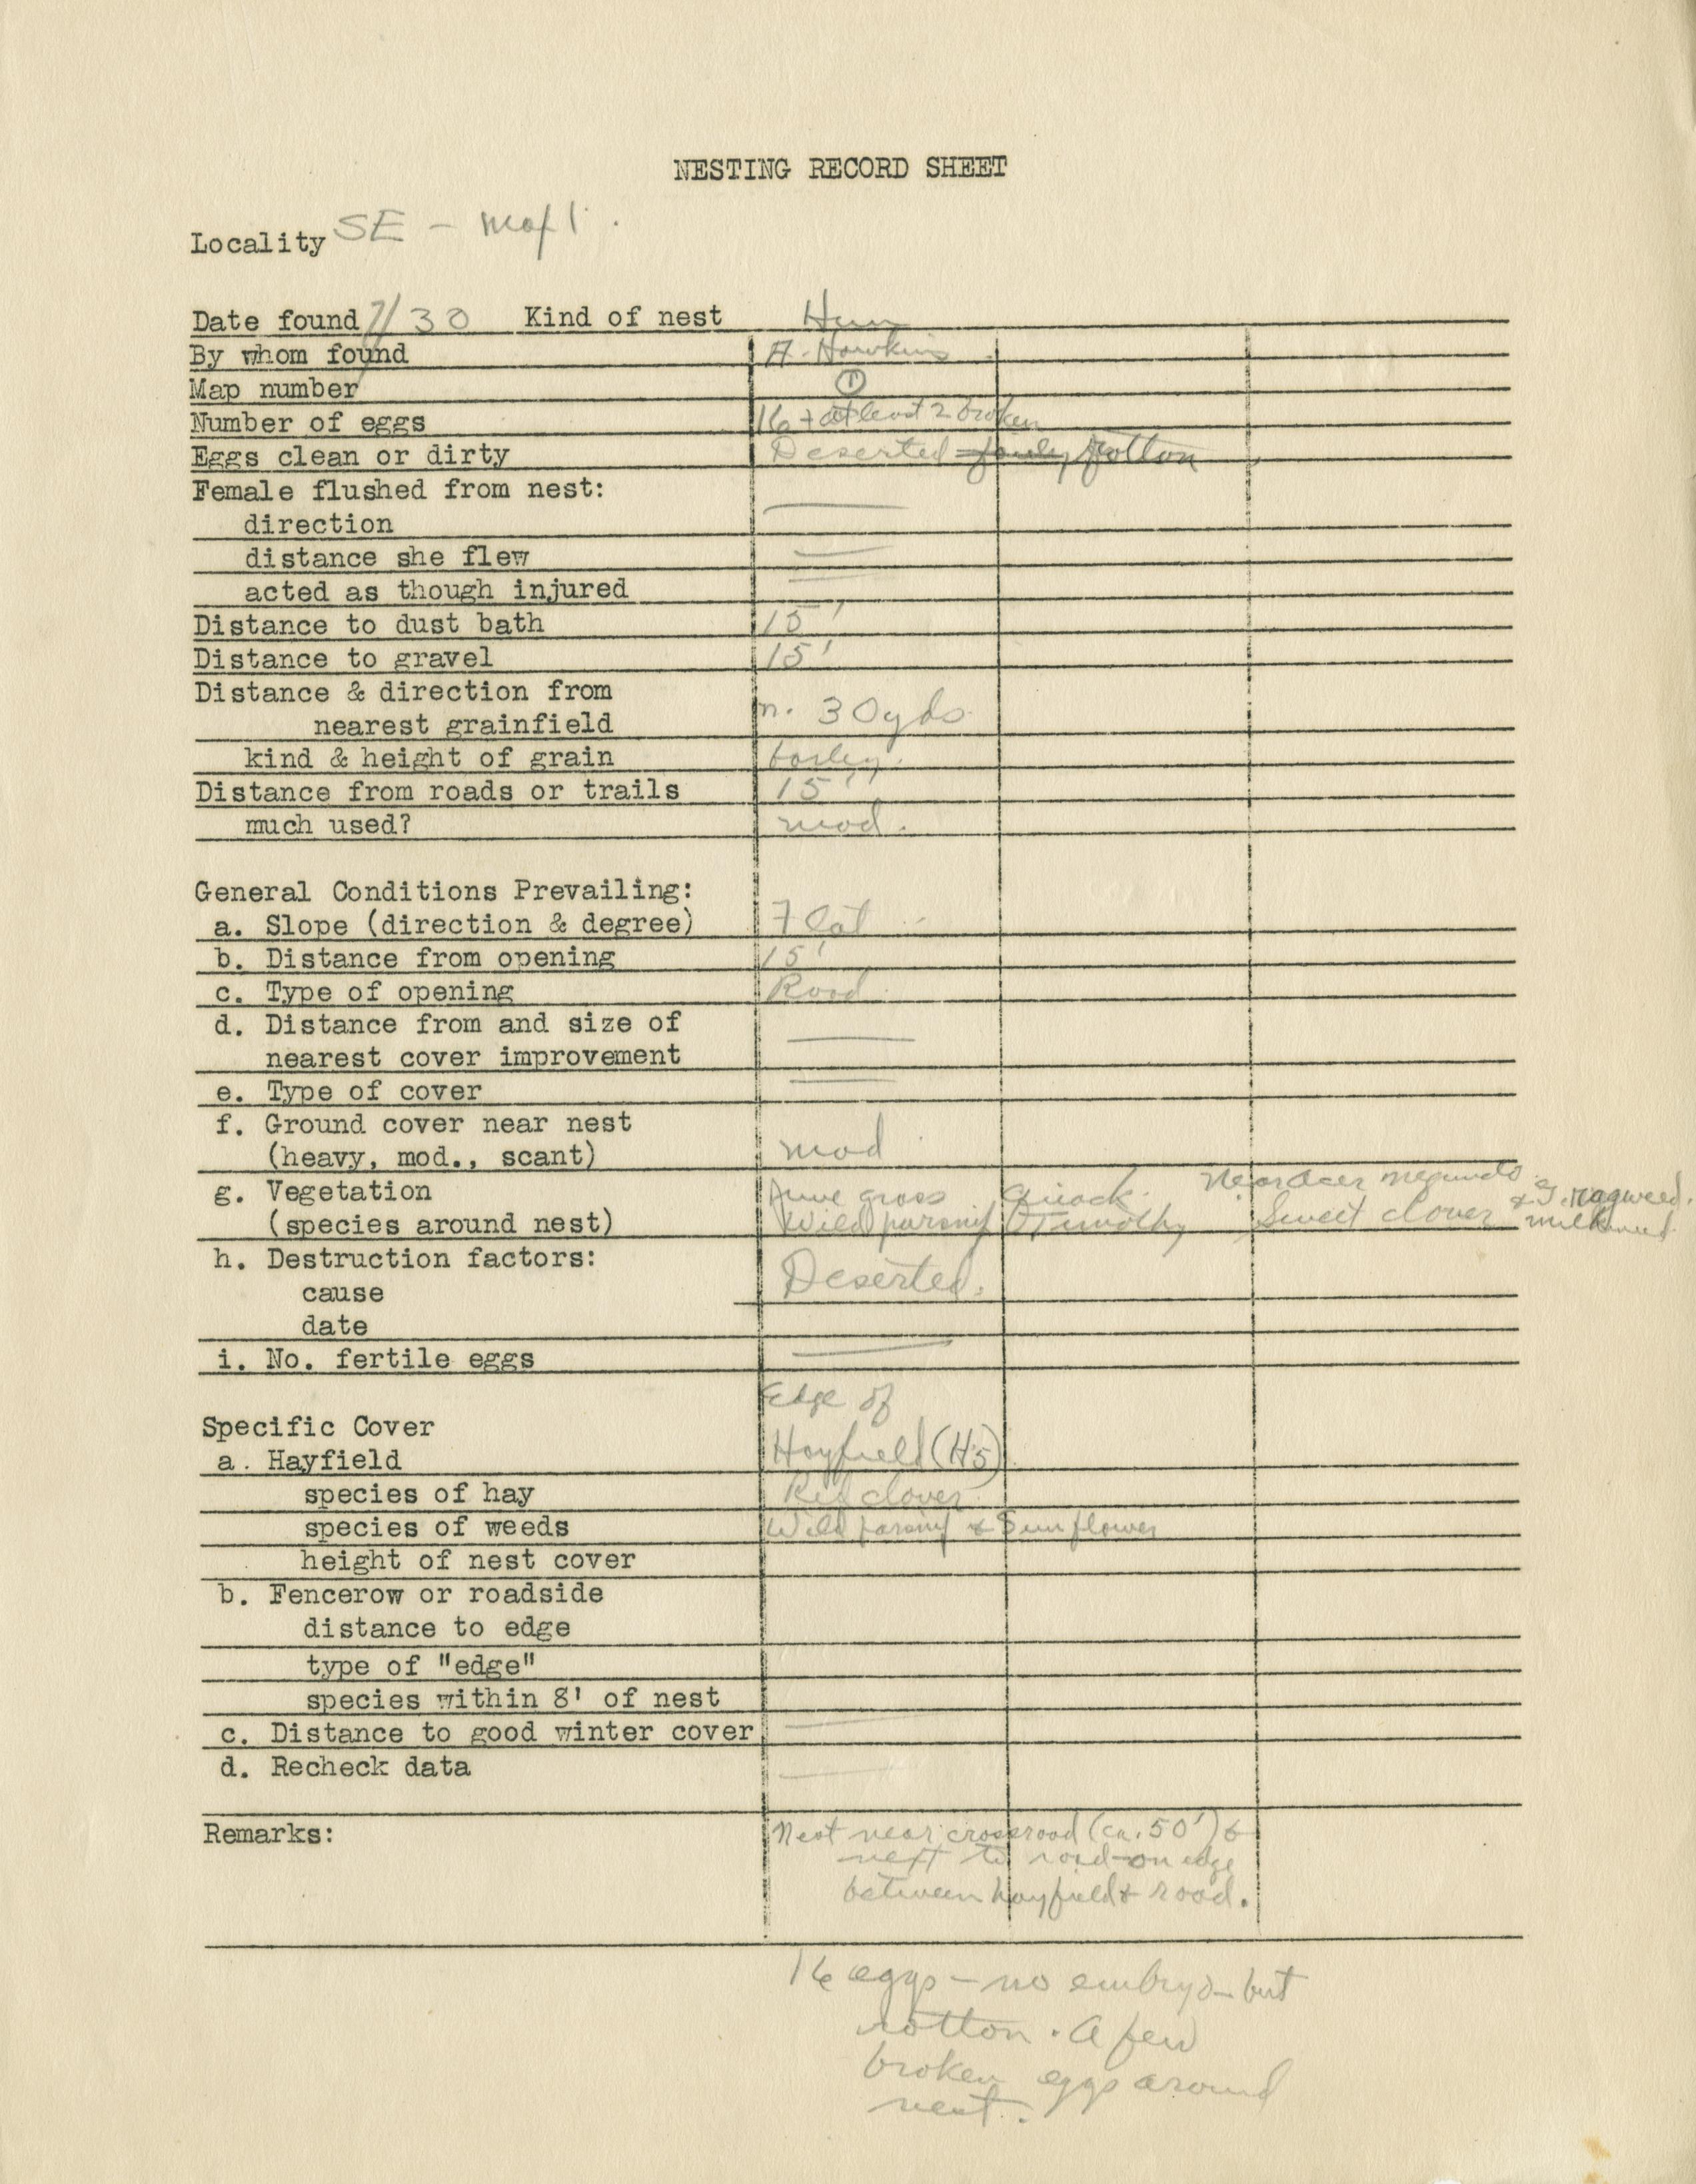 NESTING RECORD SHEET
Locality SE - Map 1.
Date found 7/30 Kind of nest Hun
By whom found A. Hawkins
Map number 1
Number of eggs 16 + at least 2 broken
Eggs clean or dirty Deserted rotton
Female flushed from nest:
direction
distance she flew
acted as though injured
Distance to dust bath 15'
Distance to gravel 15'
Distance & direction from
nearest grainfield n. 30 yds.
kind & height of grain barley.
Distance from roads or trails 15'
much used? mod.
General Conditions Prevailing:
a. Slope (direction & degree) Flat
b. Distance from opening 15'
c. Type of opening Road
d. Distance from and size of
nearest cover improvement
e. Type of cover
f. Ground cover near nest
(heavy, mod., scant) mod
g. Vegetation June grass Quack. Near Acer negundo & g. ragweed.
(species around nest) Wild parsnip Timothy Sweet clover milkweed
h. Destruction factors:
cause Deserted.
date
i. No. fertile eggs
Edge of
Specific Cover
a. Hayfield Hayfield (H5)
species of hay Red clover
species of weeds Wild parsnip & Sunflower
height of nest cover
b. Fencerow or roadside
distance to edge
type of "edge"
species within 8' of nest
c. Distance to good winter cover
d. Recheck data
Remarks: Nest near crossroad (ca. 50') &
next to road - on edge
between hayfield & road.
16 eggs - no embryo - but
rotton. A few
broken eggs around
nest.